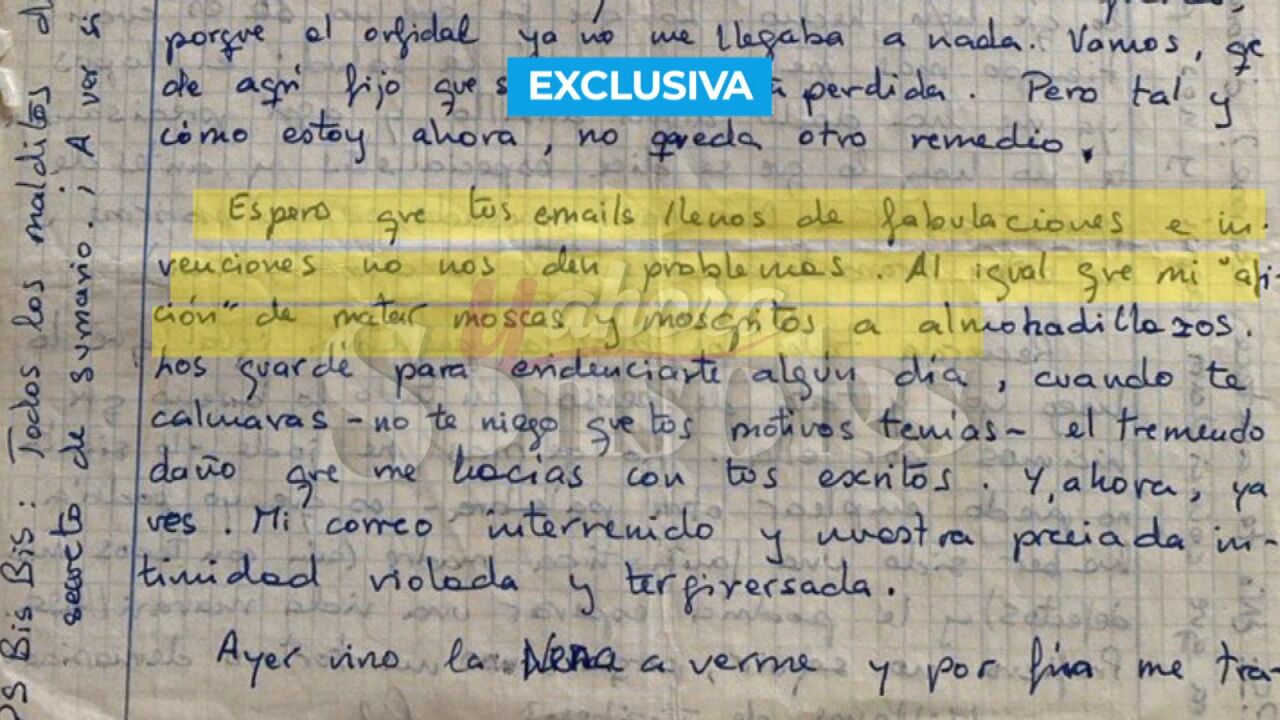 porque el orfidal ya no me llegaba a nada. Vamos, qe
de aqní fijo que s perdida. Pero tal y
EXCLUSIVA
cómo estoy ahora, no queda otro remedio.
Espero que tus emails llenos de fabulaciones e in-
venciones no nos den problemas. Al igual qe mi "afi-
ción" de matar moscas y mosqitos a almohadillazos.
Los guardé para evidenciarte algún día, cuando te
calmaras - no te niego que tus motivos tenías - el tremendo
daño qe me hacías con tus escritos. Y, ahora, ya
ves. Mi correo intervenido y nuestra preciada in-
timidad violada y tergiversada.
Ayer vino la Nena a verme y por fin me tra-
Bis Bis: Todos los malditos d
secreto de sumario. ¡A ver si
Y ahora
SONSOLES